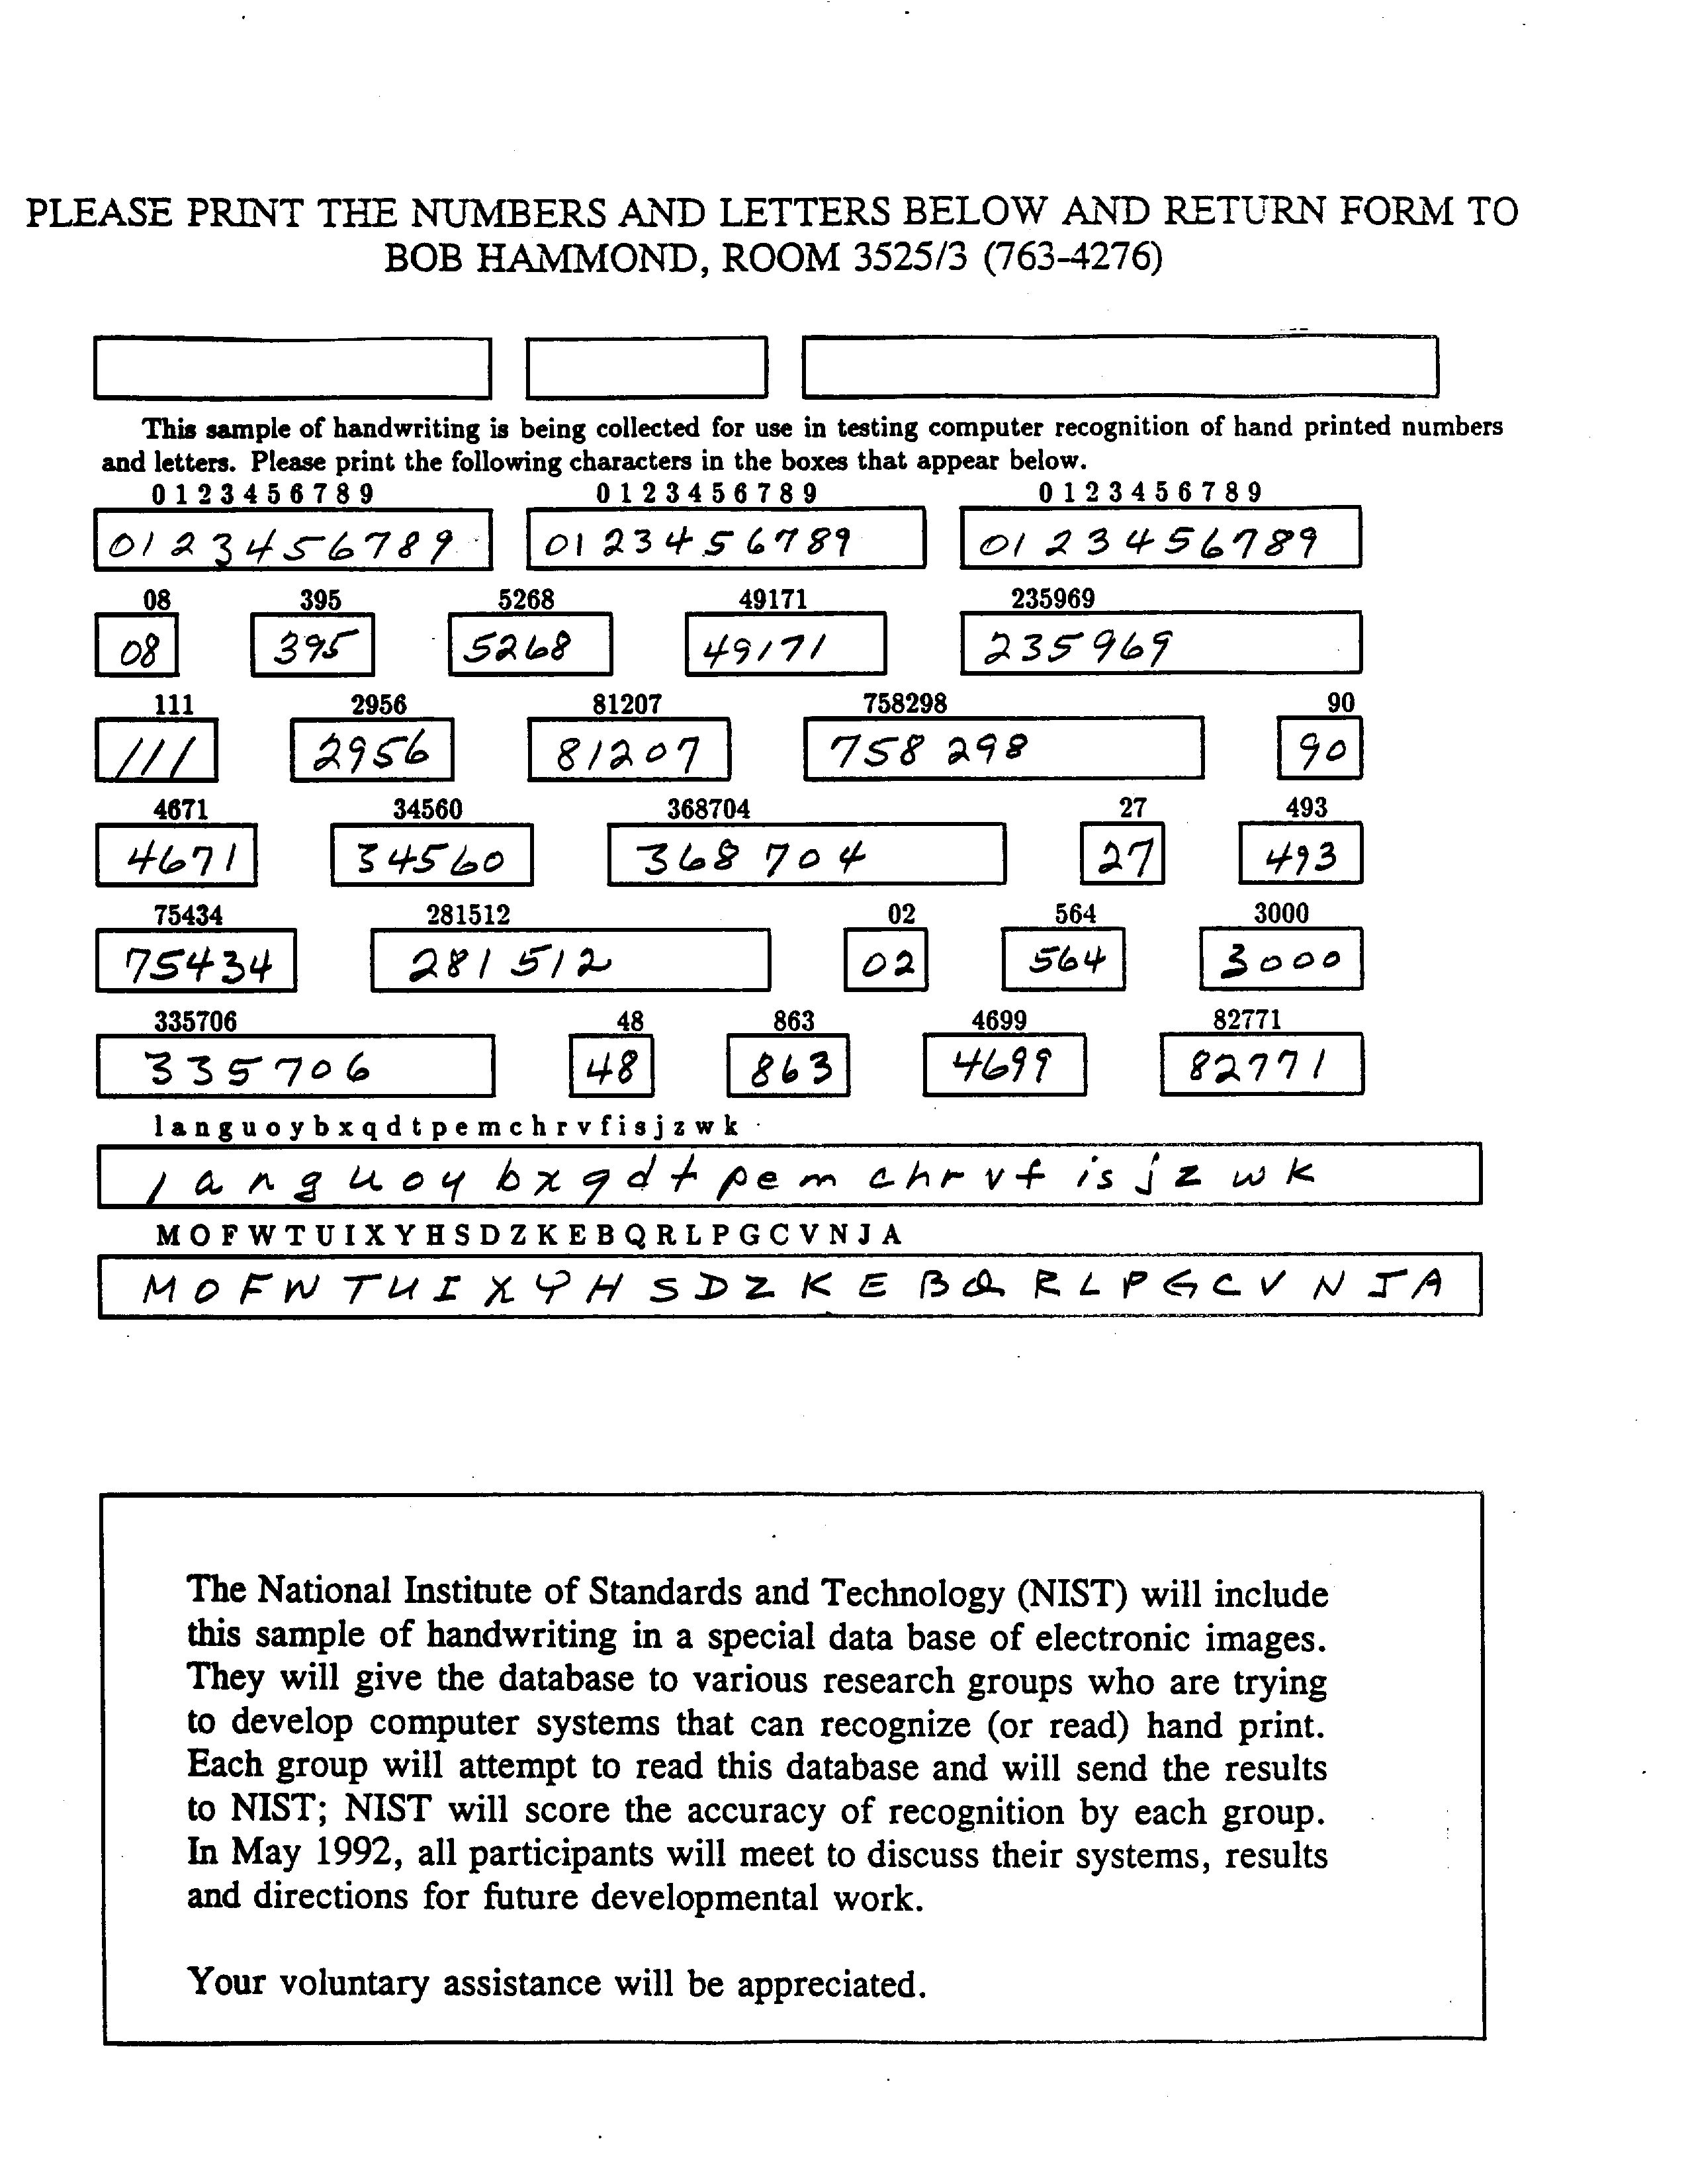 PLEASE PRINT THE NUMBERS AND LETTERS BELOW AND RETURN FORM TO
BOB HAMMOND, ROOM 3525/3 (763-4276)
This sample of handwriting is being collected for use in testing computer recognition of hand printed numbers
and letters. Please print the following characters in the boxes that appear below.
0 1 2 3 4 5 6 7 8 9 0 1 2 3 4 5 6 7 8 9 0 1 2 3 4 5 6 7 8 9
0123456789 0123456789 0123456789
08 395 5268 49171 235969
08 395 5268 49171 235969
111 2956 81207 758298 90
111 2956 81207 758 298 90
4671 34560 368704 27 493
4671 34560 368 704 27 493
75434 281512 02 564 3000
75434 281 512 02 564 3000
335706 48 863 4699 82771
335706 48 863 4699 82771
l a n g u o y b x q d t p e m c h r v f i s j z w k
l a n g u o y b x q d t p e m c h r v f i s j z w k
M O F W T U I X Y H S D Z K E B Q R L P G C V N J A
M O F W T U I X Y H S D Z K E B Q R L P G C V N J A
The National Institute of Standards and Technology (NIST) will include
this sample of handwriting in a special data base of electronic images.
They will give the database to various research groups who are trying
to develop computer systems that can recognize (or read) hand print.
Each group will attempt to read this database and will send the results
to NIST; NIST will score the accuracy of recognition by each group.
In May 1992, all participants will meet to discuss their systems, results
and directions for future developmental work.
Your voluntary assistance will be appreciated.